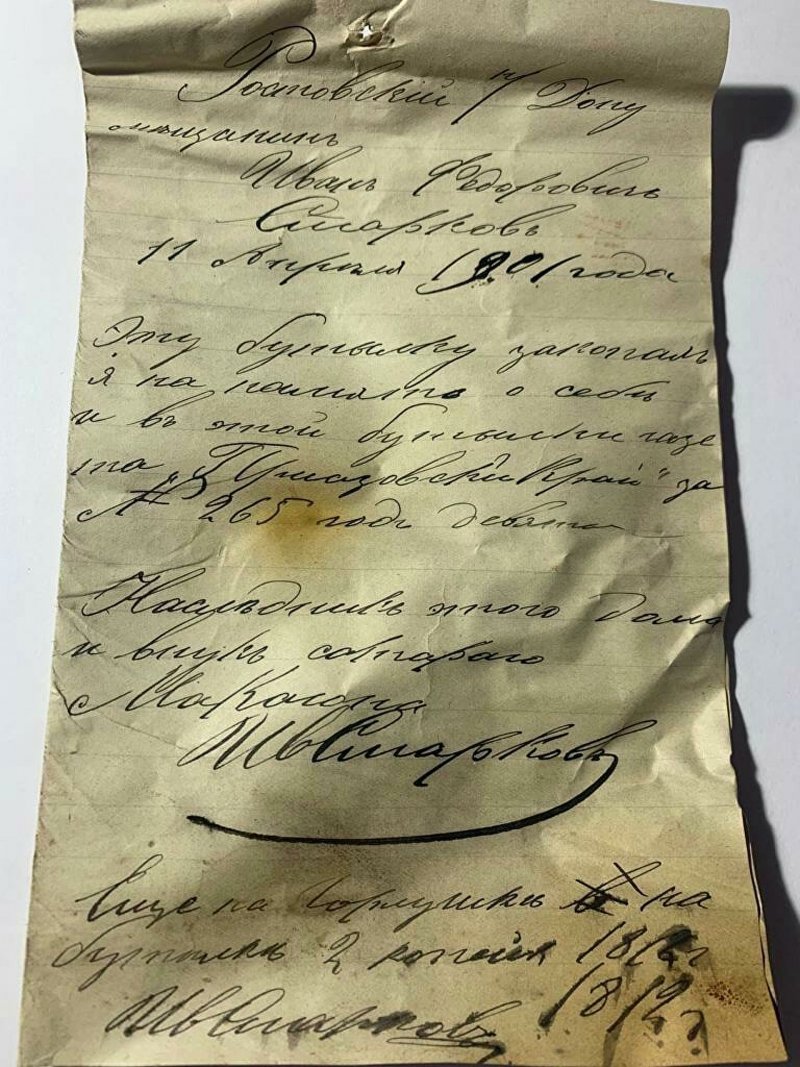 Ростовскій н/Дону
мѣщанинъ
Иванъ Федоровичъ
Старковъ
11 Апреля 1901 года
Эту бутылку закопалъ
я на память о себѣ
и въ этой бутылки газе
та „Приазовскій Край" за
№ 265 годъ девята
Наслѣдникъ этого дома
и внукъ старого
Макогона
ИвСтарковъ
Еще на горлушкѣ на
бутылкѣ 2 копѣйк 1812г
1812г
ИвСтарковъ